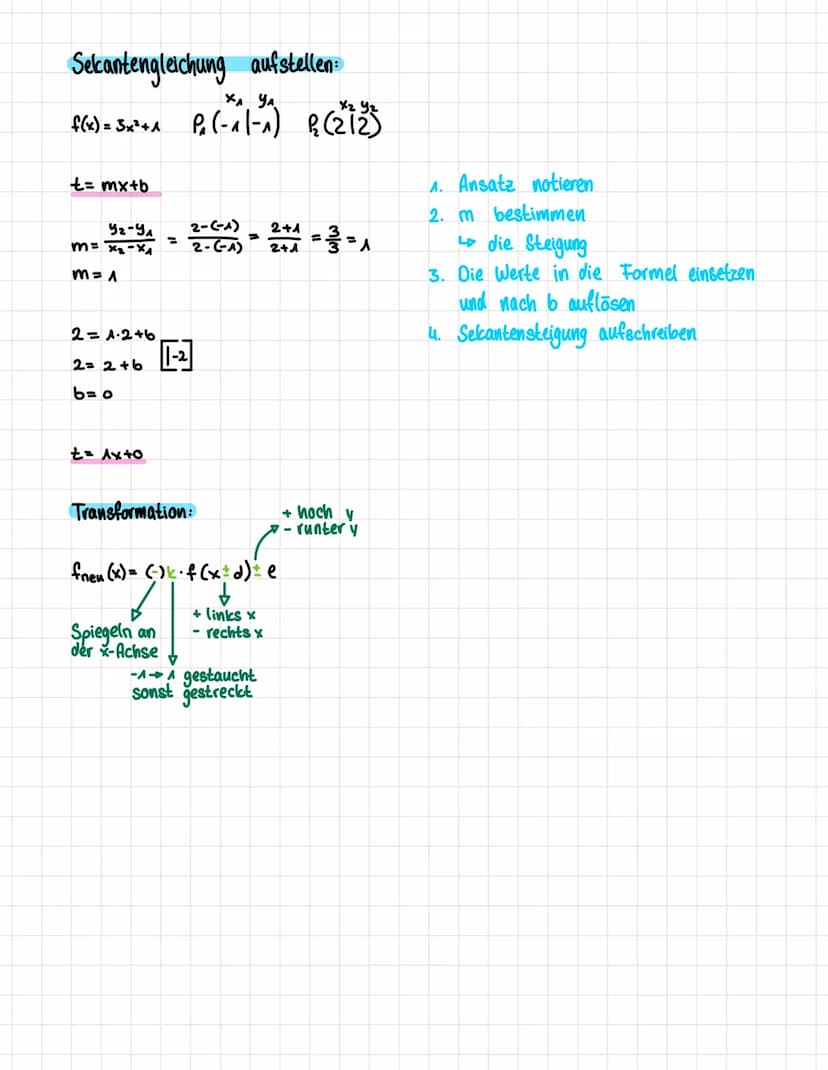 Sekantengleichung aufstellen:
x₁ y₁ x₂ y₂
f(x) = 3x²+1 P₁(-1|-1) P₂(2|2)
t= mx+b
m= y₂-y₁/x₂-x₁ = 2-(-1)/2-(-1) = 2+1/2+1 = 3/3 = 1
m= 1
2= 1·2+b
2= 2+b [|-2]
b= 0
t= 1x+0
1. Ansatz notieren
2. m bestimmen
↳ die Steigung
3. Die Werte in die Formel einsetzen
und nach b auflösen
4. Sekantensteigung aufschreiben
Transformation:
+ hoch y
- runter y
fneu(x)= (-)k·f(x±d)± e
+ links x
- rechts x
Spiegeln an
der x-Achse
-1→1 gestaucht
sonst gestreckt